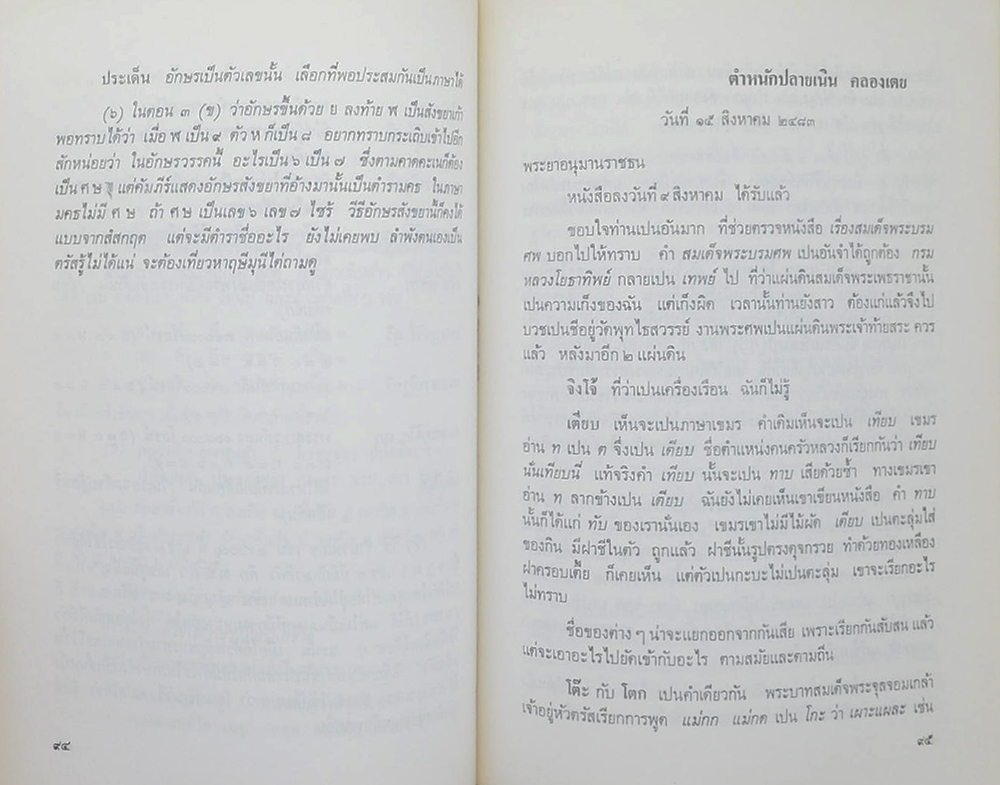 ประเด็น อักษรเป็นตัวเลขนั้น เลือกที่พอประสมกันเป็นภาษาได้
(๖) ในตอน ๓ (ข) ว่าอักษรขึ้นด้วย ย ลงท้าย ฬ เป็นสังขยาเก้า
พอทราบได้ว่า เมื่อ ฬ เป็น ๙ ตัว ห ก็เป็น ๘ อยากทราบกระเถิบเข้าไปอีก
สักหน่อยว่า ในอักษรวรรคนี้ อะไรเป็น ๖ เป็น ๗ ซึ่งตามคาดคะเนก็ต้อง
เป็น ศ ษ แต่คัมภีร์แสดงอักษรสังขยาที่อ้างมานั้นเป็นตำรามคธ ในภาษา
มคธไม่มี ศ ษ ถ้า ศ ษ เป็นเลข ๖ เลข ๗ ไซร้ วิธีอักษรสังขยานี้ก็คงได้
แบบจากสํสกฤต แต่จะมีตำราชื่ออะไร ยังไม่เคยพบ ลำพังตนเองเป็น
ตรัสรู้ไม่ได้แน่ จะต้องเที่ยวหาฤษีมุนีไต่ถามดู
๙๔
ตำหนักปลายเนิน คลองเตย
วันที่ ๑๕ สิงหาคม ๒๔๘๓
พระยาอนุมานราชธน
หนังสือลงวันที่ ๙ สิงหาคม ได้รับแล้ว
ขอบใจท่านเปนอันมาก ที่ช่วยตรวจหนังสือ เรื่องสมเด็จพระบรม
ศพ บอกไปให้ทราบ คำ สมเด็จพระบรมศพ เปนอันจำได้ถูกต้อง กรม
หลวงโยธาทิพย์ กลายเปน เทพย์ ไป ที่ว่าแผ่นดินสมเด็จพระเพธราชานั้น
เปนความเก็งของฉัน แต่เก็งผิด เวลานั้นท่านยังสาว ต้องแก่แล้วจึงไป
บวชเปนชีอยู่วัดพุทไธสวรรย์ งานพระศพเปนแผ่นดินพระเจ้าท้ายสระ ควร
แล้ว หลังมาอีก ๒ แผ่นดิน
จิงโจ้ ที่ว่าเปนเครื่องเรือน ฉันก็ไม่รู้
เตียบ เห็นจะเปนภาษาเขมร คำเดิมเห็นจะเปน เทียบ เขมร
อ่าน ท เปน ต จึ่งเปน เตียบ ชื่อตำแหน่งคนครัวหลวงก็เรียกกันว่า เทียบ
นั่นเทียบนี่ แท้จริงคำ เทียบ นั้นจะเปน ทาบ เสียด้วยซ้ำ ทางเขมรเขา
อ่าน ท ลากข้างเปน เตียบ ฉันยังไม่เคยเห็นเขาเขียนหนังสือ คำ ทาบ
นั้นก็ได้แก่ ทับ ของเรานั่นเอง เขมรเขาไม่มีไม้ผัด เตียบ เปนตะลุ่มใส่
ของกิน มีฝาชีในตัว ถูกแล้ว ฝาชีนั้นรูปตรงดุจกรวย ทำด้วยทองเหลือง
ฝาครอบเตี้ย ก็เคยเห็น แต่ตัวเปนกะบะไม่เปนตะลุ่ม เขาจะเรียกอะไร
ไม่ทราบ
ชื่อของต่าง ๆ น่าจะแยกออกจากกันเสีย เพราะเรียกกันสับสน แล้ว
แต่จะเอาอะไรไปยัดเข้ากับอะไร ตามสมัยและตามถิ่น
โต๊ะ กับ โตก เปนคำเดียวกัน พระบาทสมเด็จพระจุลจอมเกล้า
เจ้าอยู่หัวตรัสเรียกการพูด แม่กก แม่กด เปน โกะ ว่า เผาะแผะ เช่น
๙๕